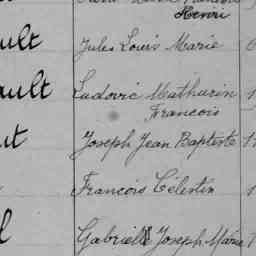 Henri
ult Jules Louis Marie
ault Ludovic Mathurin
Francois
ut Joseph Jean Baptiste 1
Francois Célestin 1
l Gabriel Joseph Marie